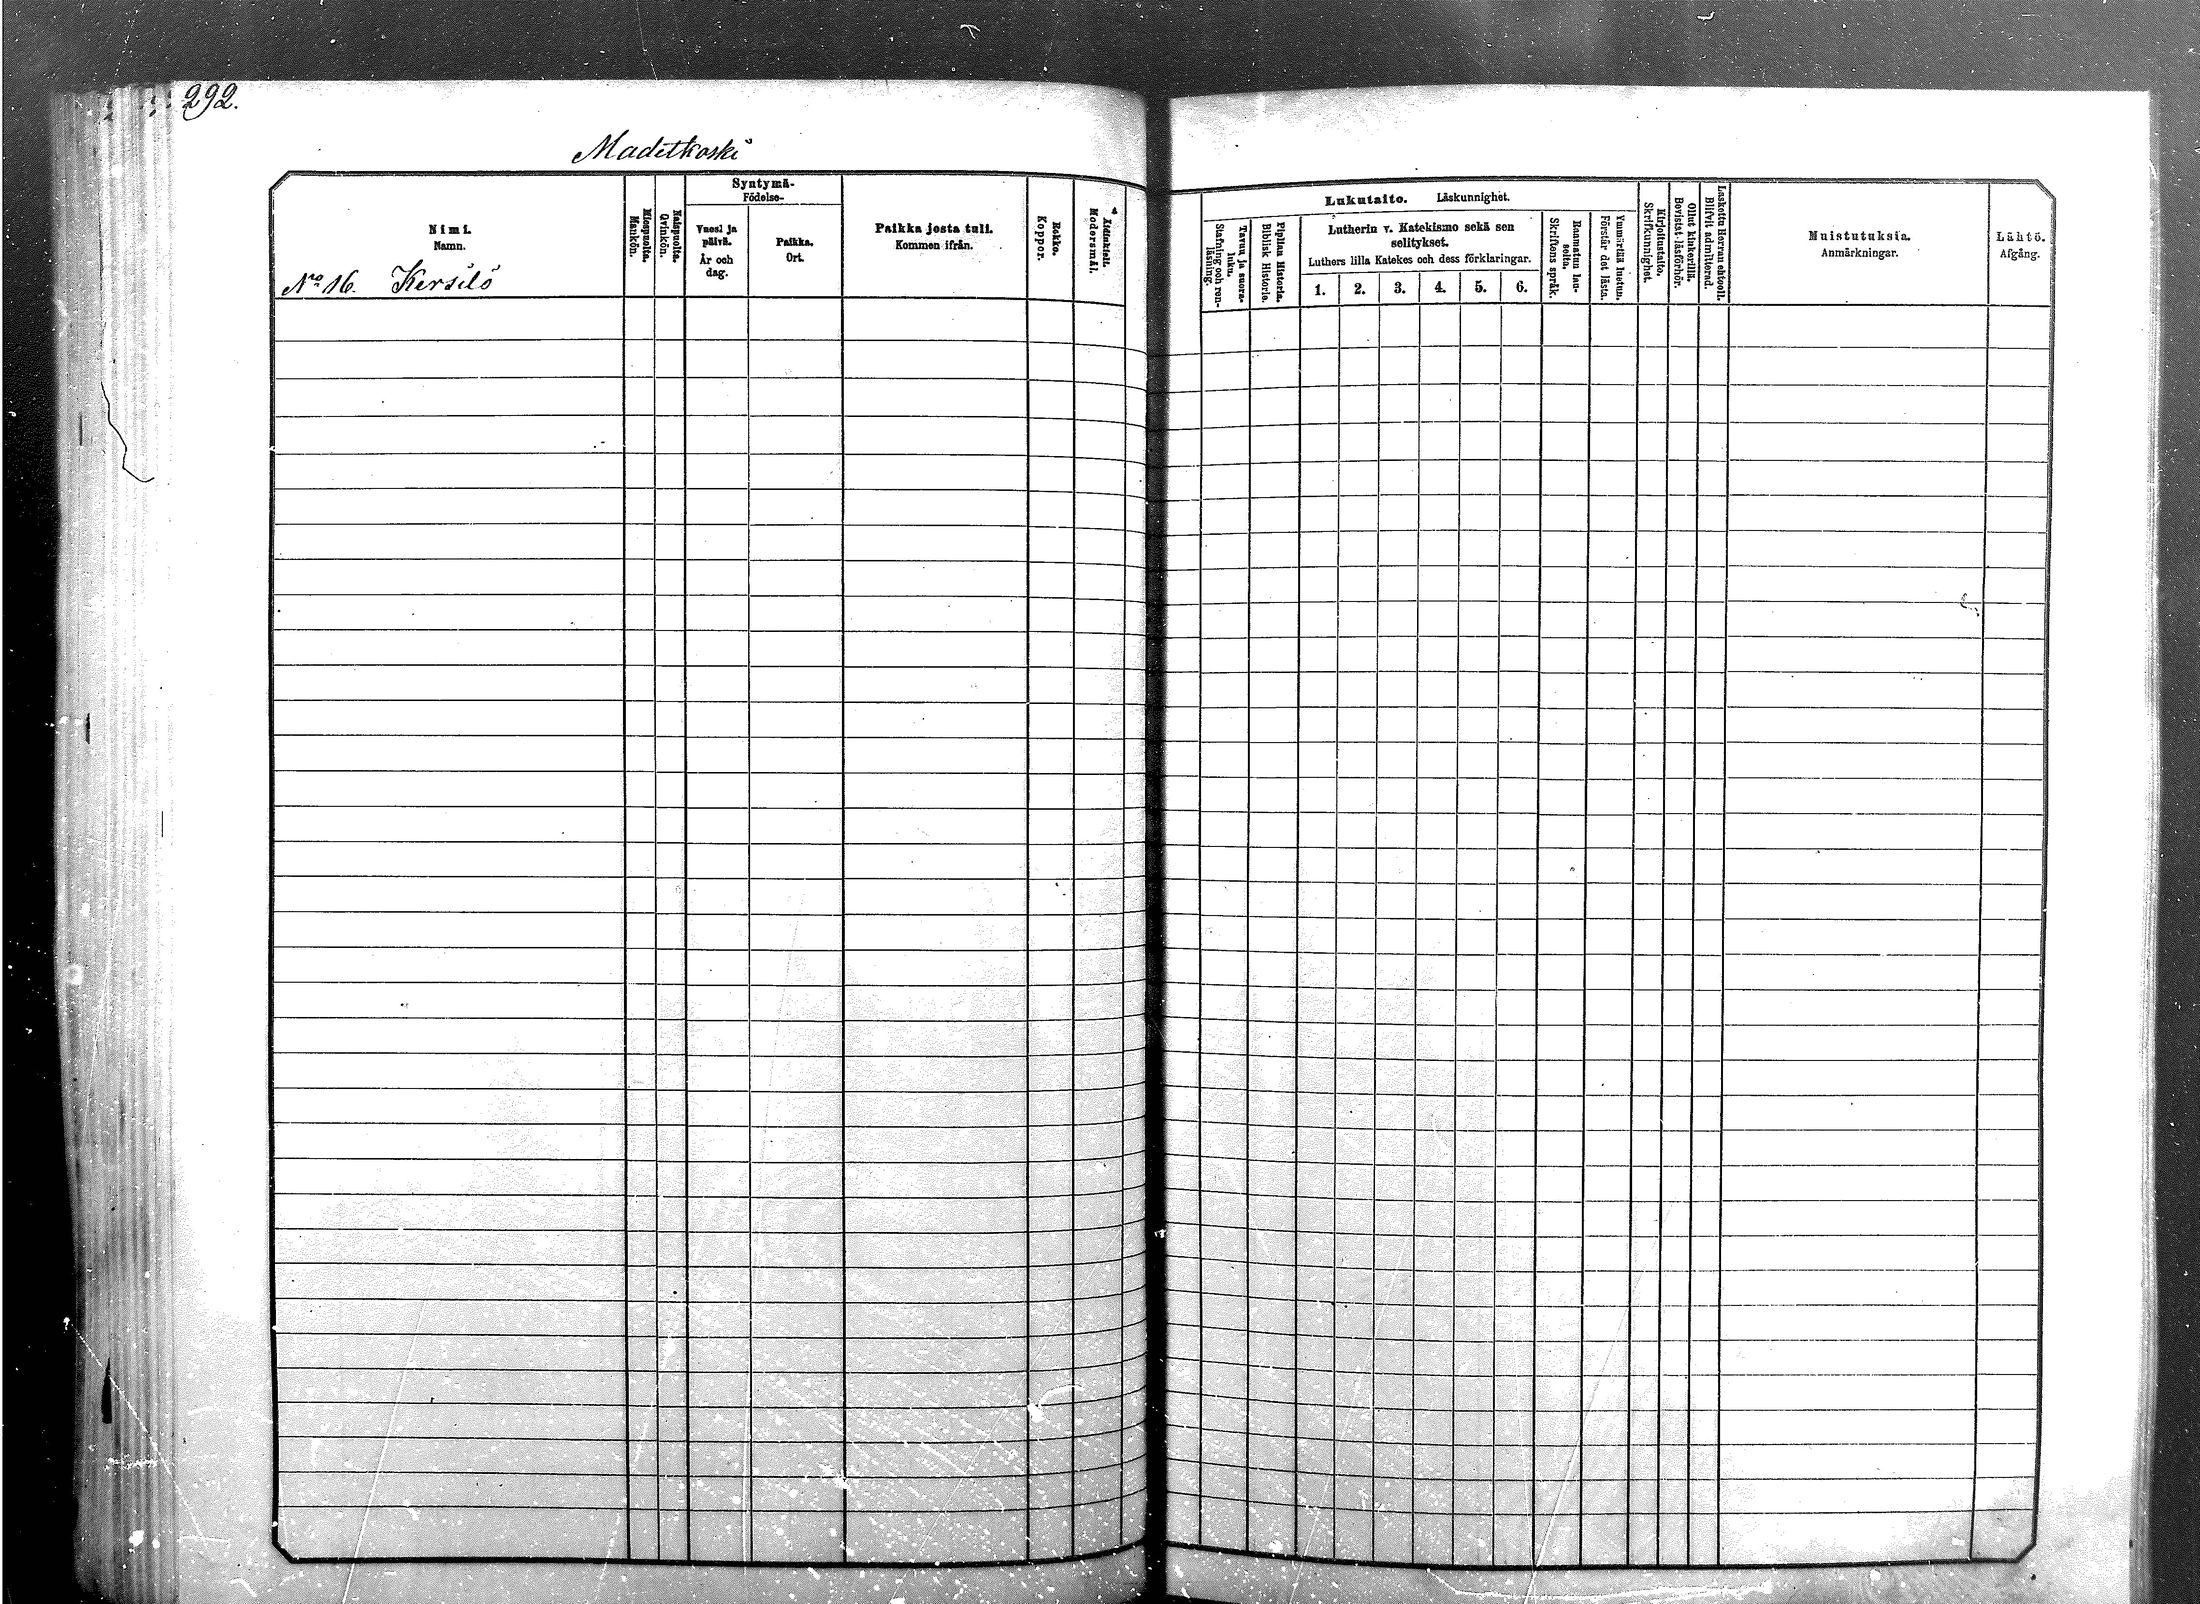 292.
Madetkoski
Nimi.
Namn.
No 16. Kersilö
Miespuolta.
Mankön.
Naispuolta.
Qvinkön.
Syntymä-
Födelse-
Vuosi ja
päivä.
År och
dag.
Paikka.
Ort.
Paikka josta tuli.
Kommen ifrån.
Rokko.
Koppor.
Äidinkieli.
Modersmål.
Lukutaito. Läskunnighet.
Tavuu ja suora-
luku.
Stafning och ren-
läsning.
Piplian Historia.
Biblisk Historie.
Lutherin v. Katekismo sekä sen
selitykset.
Luthers lilla Katekes och dess förklaringar.
1. 2. 3. 4. 5. 6.
Raamatun lau-
seita.
Skriftens språk.
Ymmärtää luetun.
Förstår det lästa.
Kirjoitustaito.
Skrifkunnighet.
Ollut kinkerillä.
Bevistat läsförhör.
Laskettu Herran ehtooll.
Blifvit admitterad.
Muistutuksia.
Anmärkningar.
Lähtö.
Afgång.